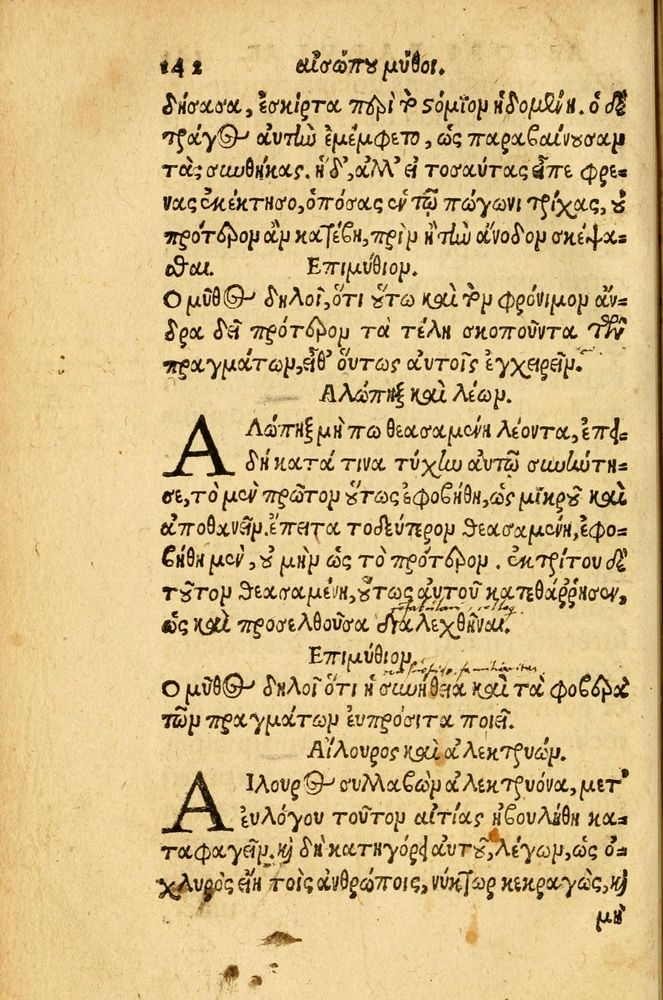 142 αἰσώπου μῦθοι.
δήσασα, ἐσκίρτα περὶ τὸ στόμιον ἡδομένη. ὁ δὲ
τράγος αὐτὴν ἐμέμφετο, ὡς παραβαίνουσαν
τὰς συνθήκας. ἡ δ', ἀλλ' εἰ τοσαύτας εἶπε φρε-
νας ἐκέκτησο, ὁπόσας ἐν τῷ πώγωνι τρίχας, οὐ
πρότερον ἂν κατέβης, πρὶν ἢ τὴν ἄνοδον σκέψα-
σθαι. Επιμύθιον.
Ο μῦθος δηλοῖ, ὅτι οὕτω καὶ τὸν φρόνιμον ἄν-
δρα δεῖ πρότερον τὰ τέλη σκοποῦντα τῶν
πραγμάτων, εἶθ' οὕτως αὐτοῖς ἐγχειρεῖν.
Αλώπηξ καὶ λέων.
ΑΛώπηξ μὴ πω θεασαμένη λέοντα, ἐπει-
δὴ κατά τινα τύχην αὐτῷ συνήντη-
σε, τὸ μὲν πρῶτον οὕτως ἐφοβήθη, ὡς μικροῦ καὶ
ἀποθανεῖν. ἔπειτα τὸ δεύτερον θεασαμένη, ἐφο-
βήθη μὲν, οὐ μὴν ὡς τὸ πρότερον. ἐκ τρίτου δὲ
τοῦτον θεασαμένη, οὕτως αὐτοῦ κατεθάρρησεν,
ὡς καὶ προσελθοῦσα διαλεχθῆναι.
Επιμύθιον.
Ο μῦθος δηλοῖ ὅτι ἡ συνήθεια καὶ τὰ φοβερὰ
τῶν πραγμάτων εὐπρόσιτα ποιεῖ.
Αἴλουρος καὶ ἀλεκτρυών.
ΑΙλουρος συλλαβὼν ἀλεκτρυόνα, μετ'
εὐλόγου τοῦτον αἰτίας ἠβουλήθη κα-
ταφαγεῖν. καὶ δὴ κατηγόρει αὐτοῦ, λέγων, ὡς ὀ-
χληρὸς εἴη τοῖς ἀνθρώποις, νύκτωρ κεκραγὼς, καὶ
μὴ